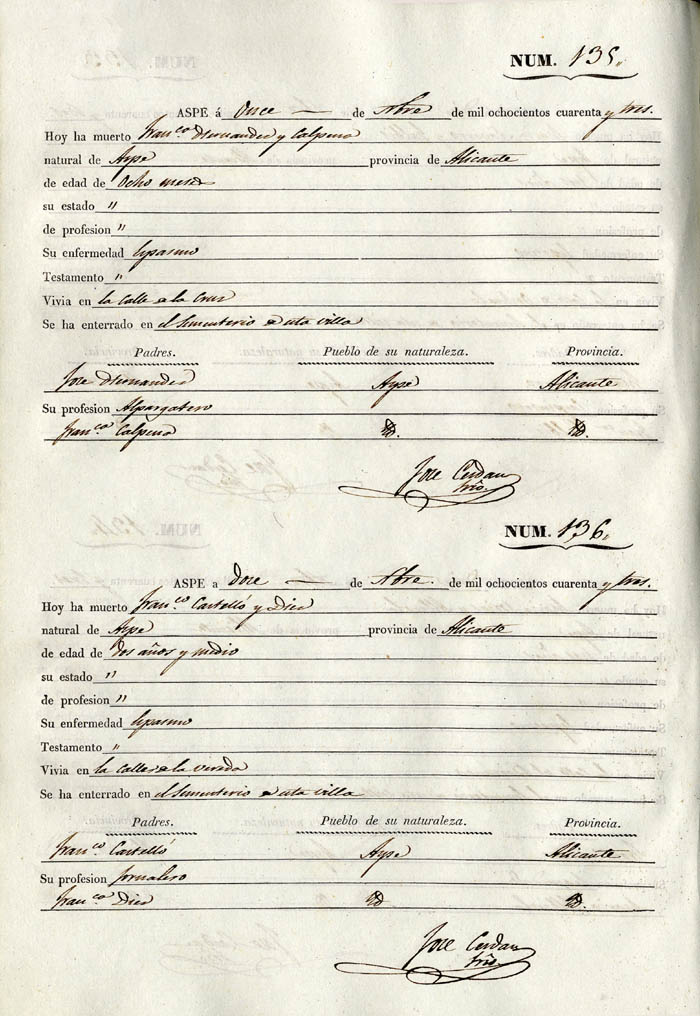 NUM. 135.
ASPE á Once — de Nbre de mil ochocientos cuarenta y tres.
Hoy ha muerto Fran.co Hernandes y Calpena
natural de Aspe provincia de Alicante
de edad de Ocho meses
su estado "
de profesion "
Su enfermedad Espasmo
Testamento "
Vivia en la calle de la Cruz
Se ha enterrado en el Sementerio de esta villa
Padres. Pueblo de su naturaleza. Provincia.
Jose Hernandes Aspe Alicante
Su profesion Alpargatero
Fran.ca Calpena Yd. Yd.
Jose Cerdan
NUM. 136.
ASPE a Doce — de Nbre. de mil ochocientos cuarenta y tres.
Hoy ha muerto Fran.co Castelló y Dies
natural de Aspe provincia de Alicante
de edad de Dos años y medio
su estado "
de profesion "
Su enfermedad Espasmo
Testamento "
Vivia en la calle de la Vereda
Se ha enterrado en el Sementerio de esta villa
Padres. Pueblo de su naturaleza. Provincia.
Fran.co Castelló Aspe Alicante
Su profesion Jornalero
Fran.ca Dies Yd Yd.
Jose Cerdan